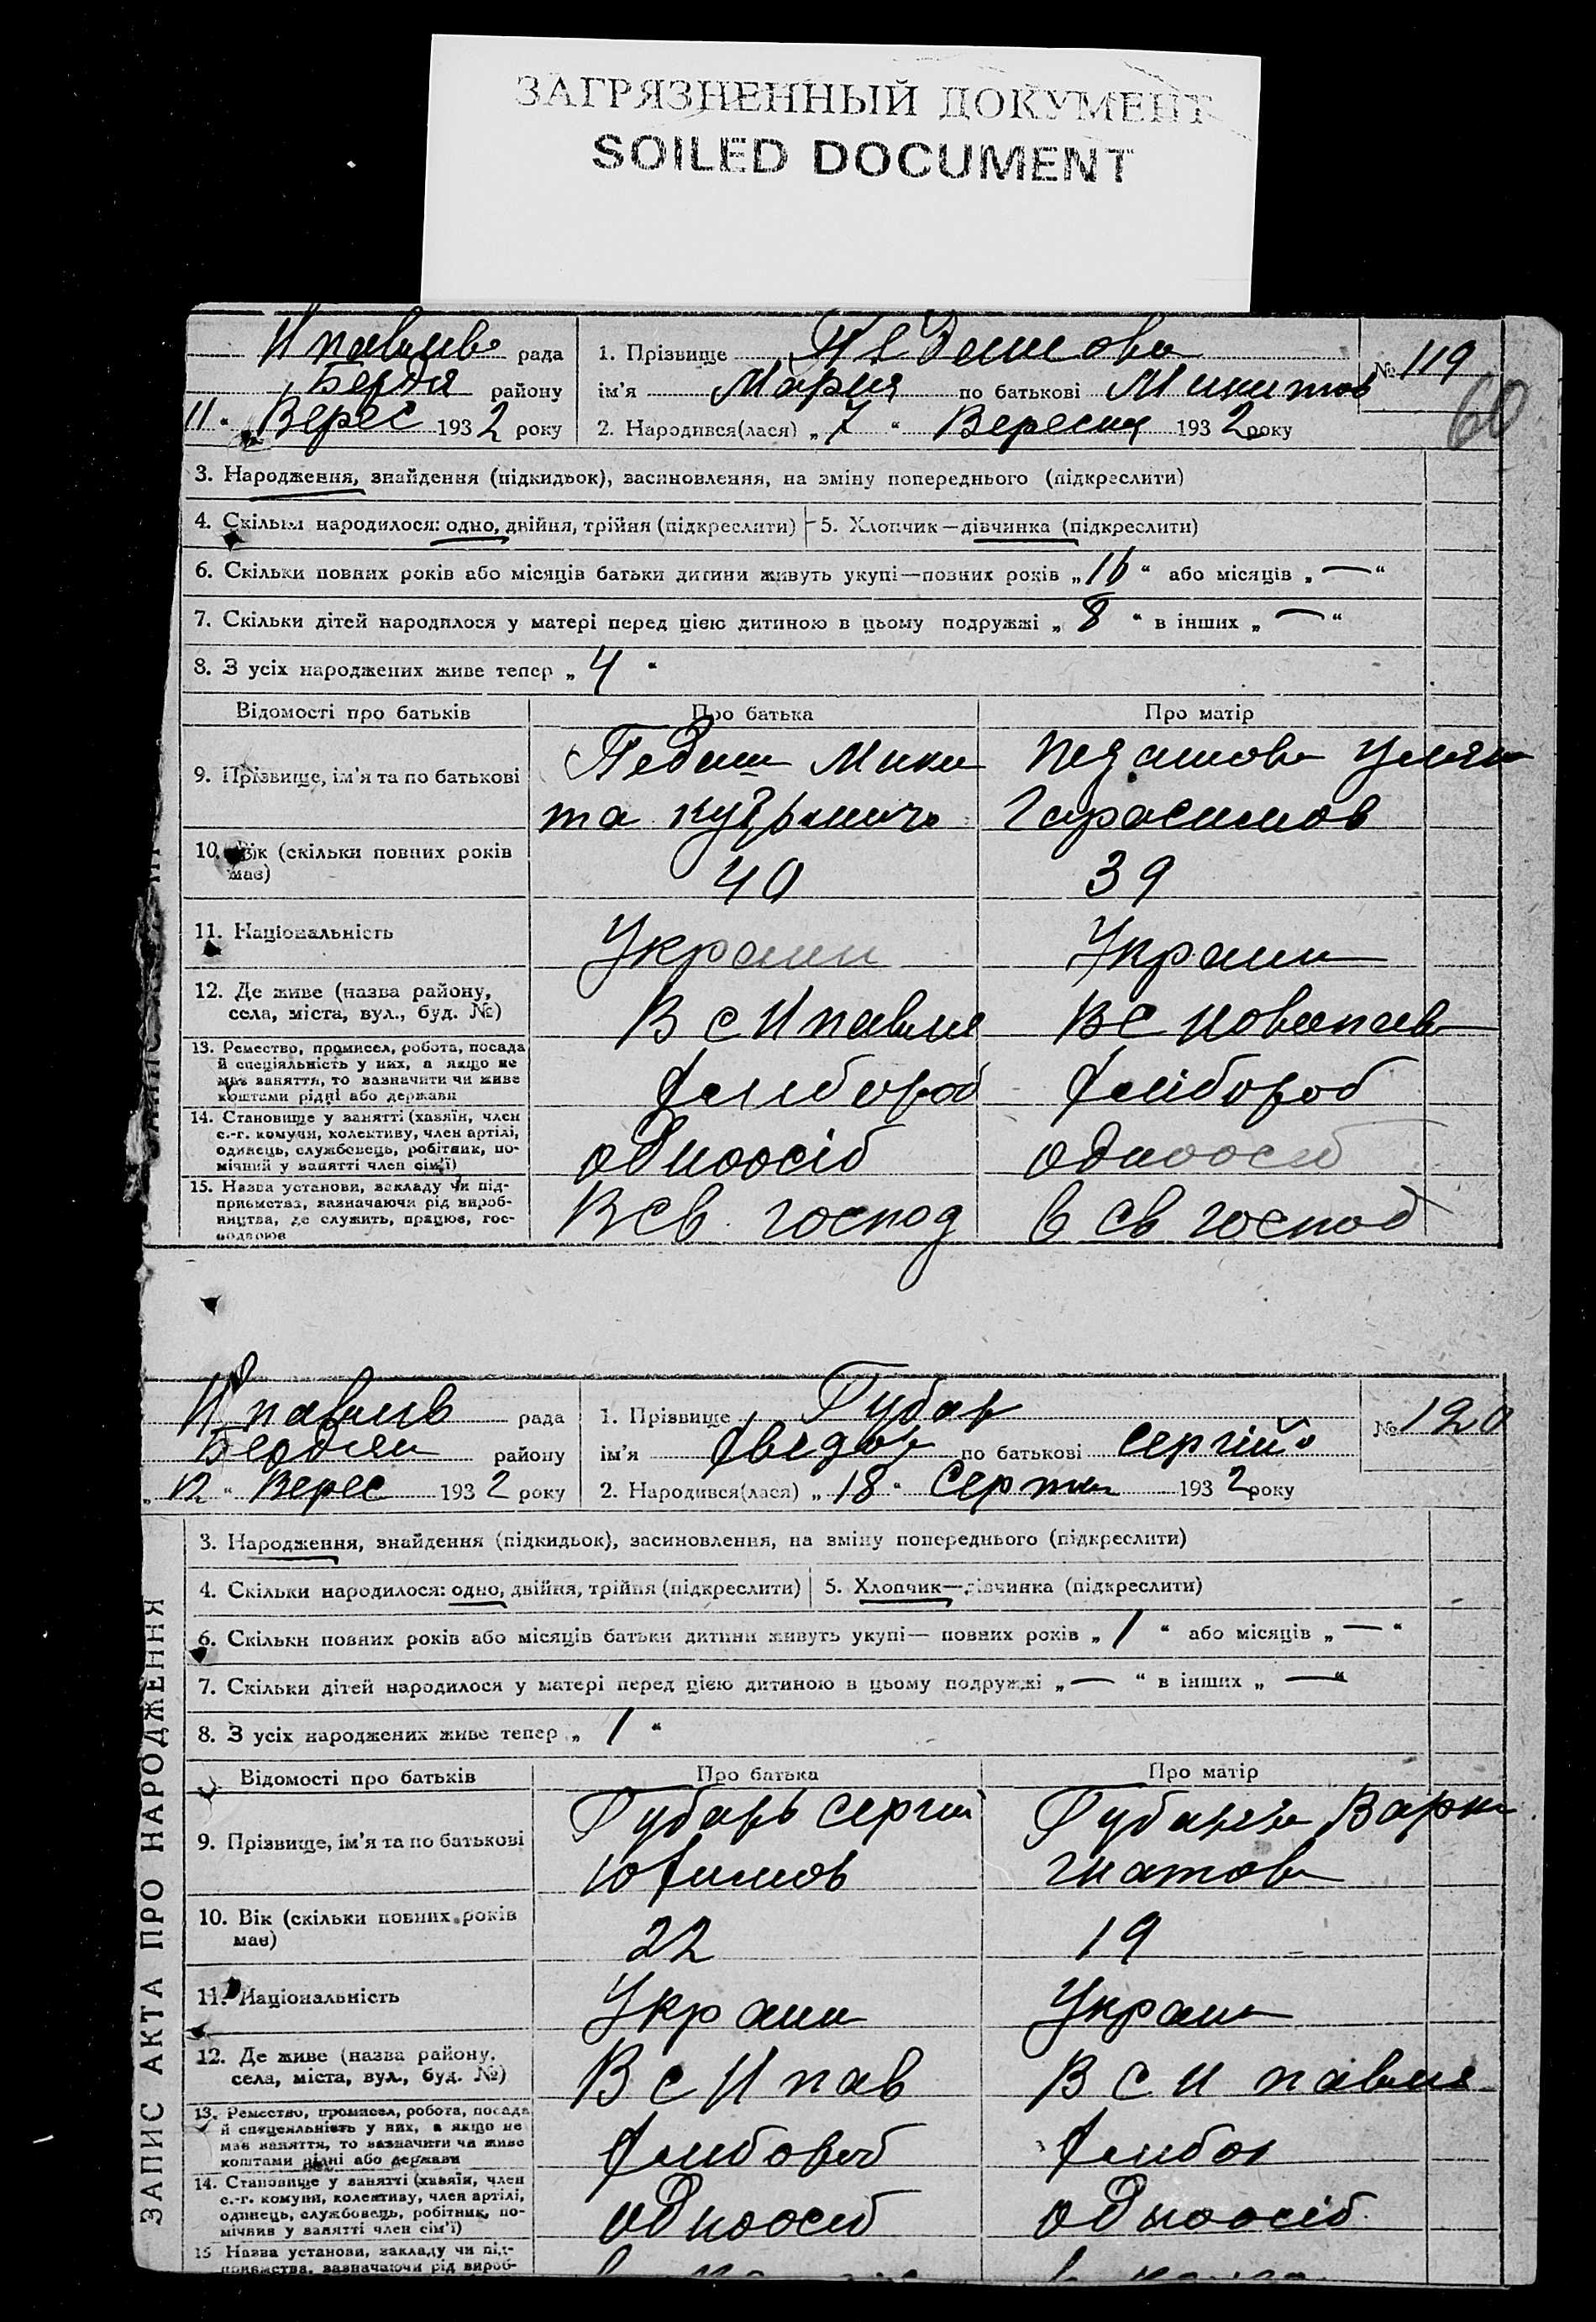 ЗАГРЯЗНЕННЫЙ ДОКУМЕНТ
SOILED DOCUMENT
Н павлив рада
Бердя району
11 " Верес 1932 року
1. Прізвище
ім'я Мария по батькові Микитов
2. Народився(лася) „ 7 " Вересня 1932 року
№ 119
60
3. Народження, знайдення (підкидьок), засиновлення, на зміну попереднього (підкреслити)
4. Скільки народилося: одно, двійня, трійня (підкреслити) 5. Хлопчик—дівчинка (підкреслити)
6. Скільки повних років або місяців батьки дитини живуть укупі—повних років „ 16 " або місяців „ — "
7. Скільки дітей народилося у матері перед цією дитиною в цьому подружжі „ 8 " в інших „ — "
8. З усіх народжених живе тепер „ 4 "
Відомості про батьків Про батька Про матір
9. Прізвище, ім'я та по батькові
Педаш Мики
та
Гарасимов
10. Вік (скільки повних років має) 40 39
11. Національність Украин Украин
12. Де живе (назва району, села, міста, вул., буд. №)
В с Н павлив В с Новопав
13. Ремество, промисел, робота, посада
й спеціяльність у них, а якщо не
має заняття, то зазначити чи живе
коштами рідні або держави
хлібороб хлібороб
14. Становище у занятті (хазяїн, член
с.-г. комуни, колективу, член артілі,
одинець, службовець, робітник, по-
мічний у занятті член сім'ї)
одноосіб одноосіб
15. Назва установи, закладу чи під-
приємства, зазначаючи рід вироб-
ництва, де служить, працює, гос-
подарює
В св господ в св господ
Н павлив рада
Бердян району
„ 12 " Верес 1932 року
1. Прізвище Губар
ім'я по батькові Сергійо
2. Народився(лася) „ 18 " Серпня 1932 року
№ 120
3. Народження, знайдення (підкидьок), засиновлення, на зміну попереднього (підкреслити)
4. Скільки народилося: одно, двійня, трійня (підкреслити) 5. Хлопчик—дівчинка (підкреслити)
6. Скільки повних років або місяців батьки дитини живуть укупі— повних років „ 1 " або місяців „ — "
7. Скільки дітей народилося у матері перед цією дитиною в цьому подружжі „ — " в інших „ — "
8. З усіх народжених живе тепер „ 1 "
Відомості про батьків Про батька Про матір
9. Прізвище, ім'я та по батькові
Губарь Сергій
Юхимов
Варк
Гнатов
10. Вік (скільки повних років має) 22 19
11. Національність Украин Украин
12. Де живе (назва району, села, міста, вул., буд. №)
В с Н пав В с Н павлив
13. Ремество, промисел, робота, посада
й спеціяльність у них, а якщо не
має заняття, то зазначити чи живе
коштами рідні або держави
хлібороб хлібор
14. Становище у занятті (хазяїн, член
с.-г. комуни, колективу, член артілі,
одинець, службовець, робітник, по-
мічник у занятті член сім'ї)
одноосіб одноосіб
15 Назва установи, закладу чи під-
приємства, зазначаючи рід вироб-
ЗАПИС АКТА ПРО НАРОДЖЕННЯ